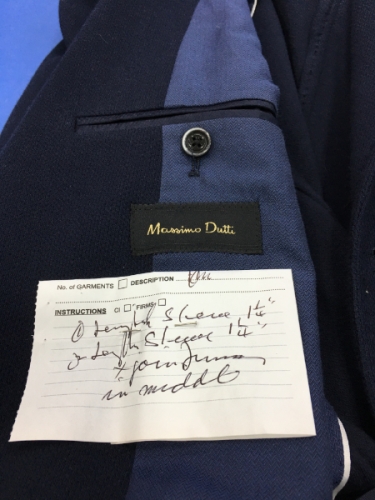 Massimo Dutti
No. of GARMENTS DESCRIPTION
INSTRUCTIONS CI "FIRMS"
① Length Sleeve 1¼"
Length Sleeve 1¼"
in middle